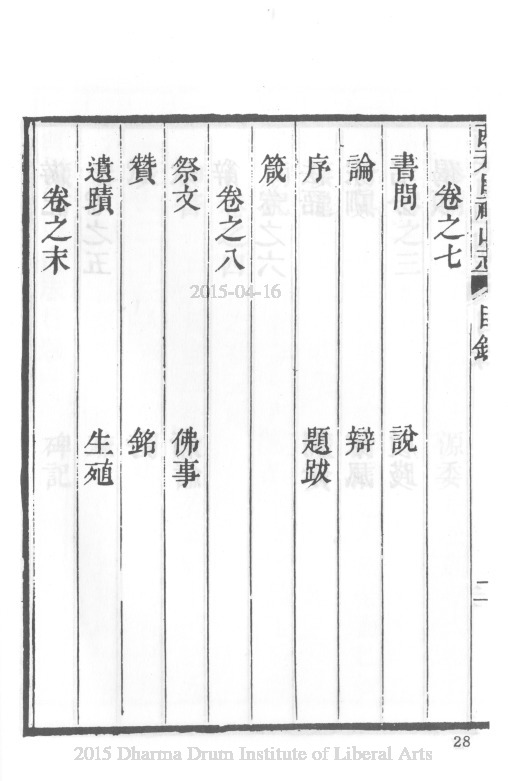 西天目祖山志 目錄 二
卷之七
書問 說
論 辯
序 題跋
箴
卷之八
祭文 佛事
贊 銘
遺蹟 生殖
卷之末
2015-04-16
28
2015 Dharma Drum Institute of Liberal Arts